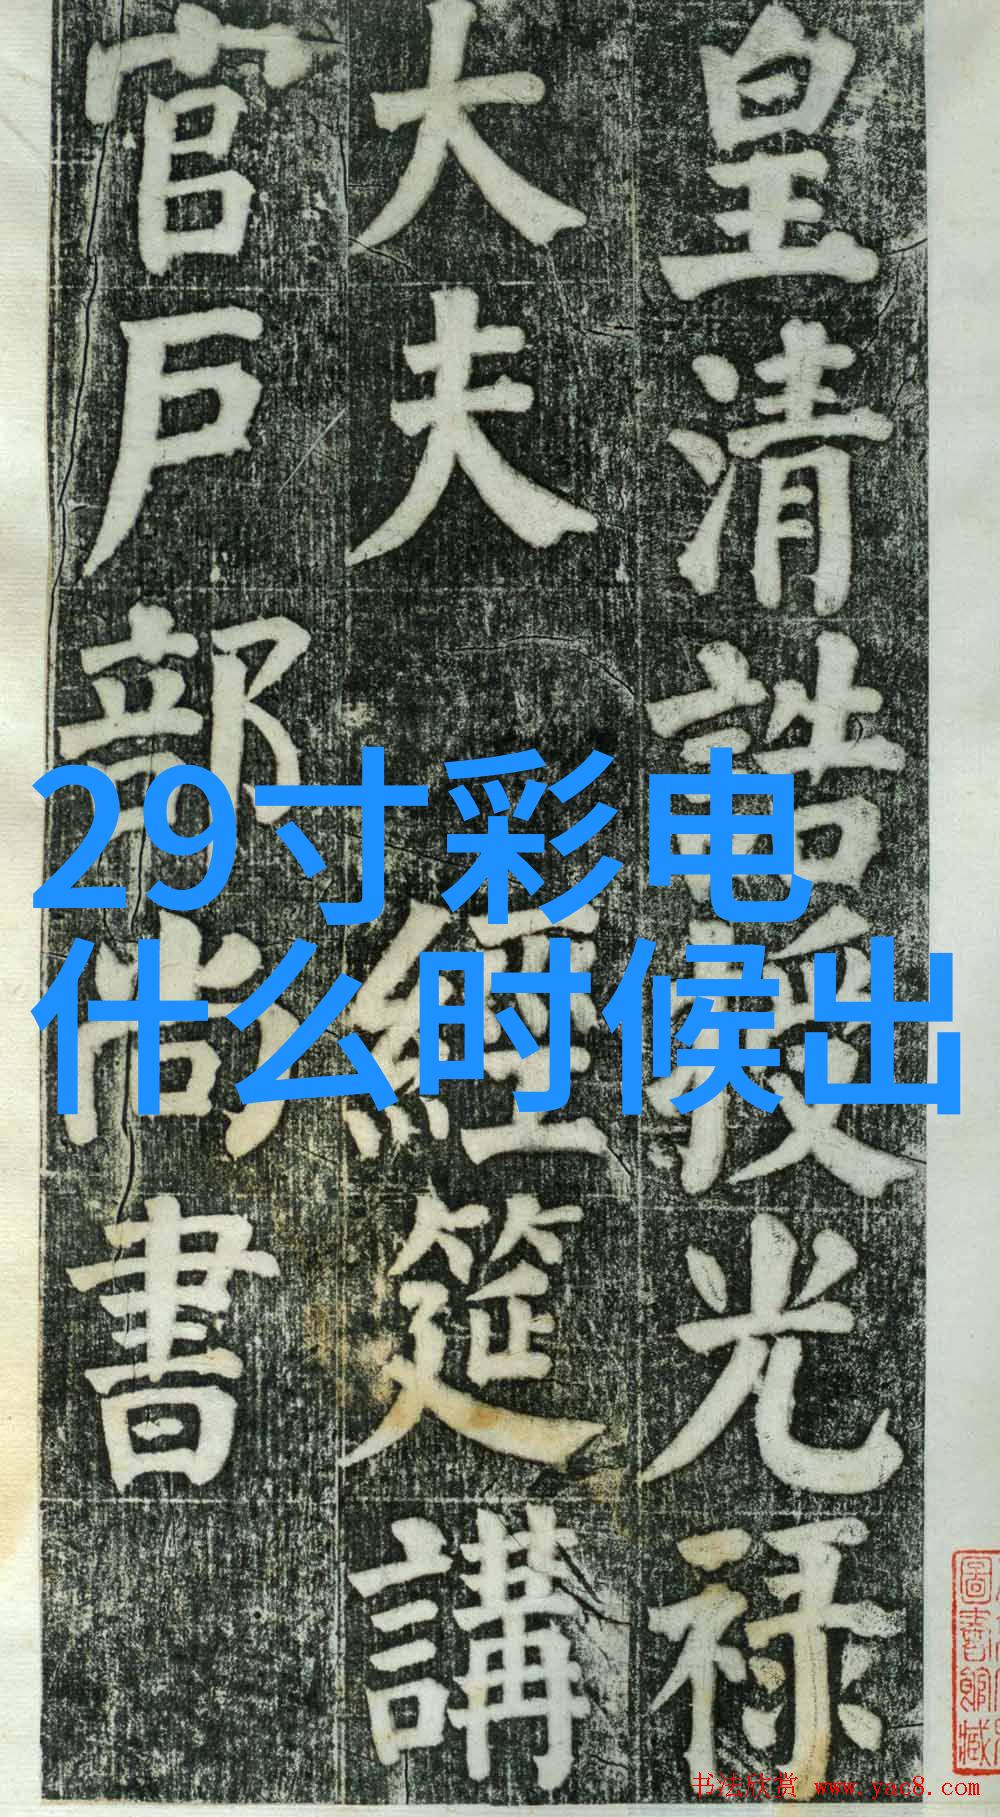 皇清誥授光禄
大夫 經筵講
官戶部尚書
29寸彩电
什么时候出
圖書館藏
书法欣赏 www.yac8.com